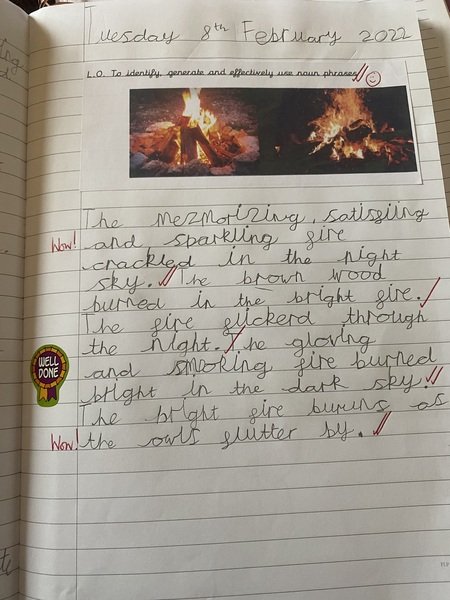 Tuesday 8th February 2022
L.O. To identify, generate and effectively use noun phrases
The mezmorizing, satisfiing
Wow! and, sparkling fire
crackled in the night
sky. The brown wood
burned in the bright fire.
The fire flickerd through
the night. The gloving
WELL DONE
and smoking fire burned
bright in the dark sky.
The bright fire buruns as
Wow! the owls flutter by.